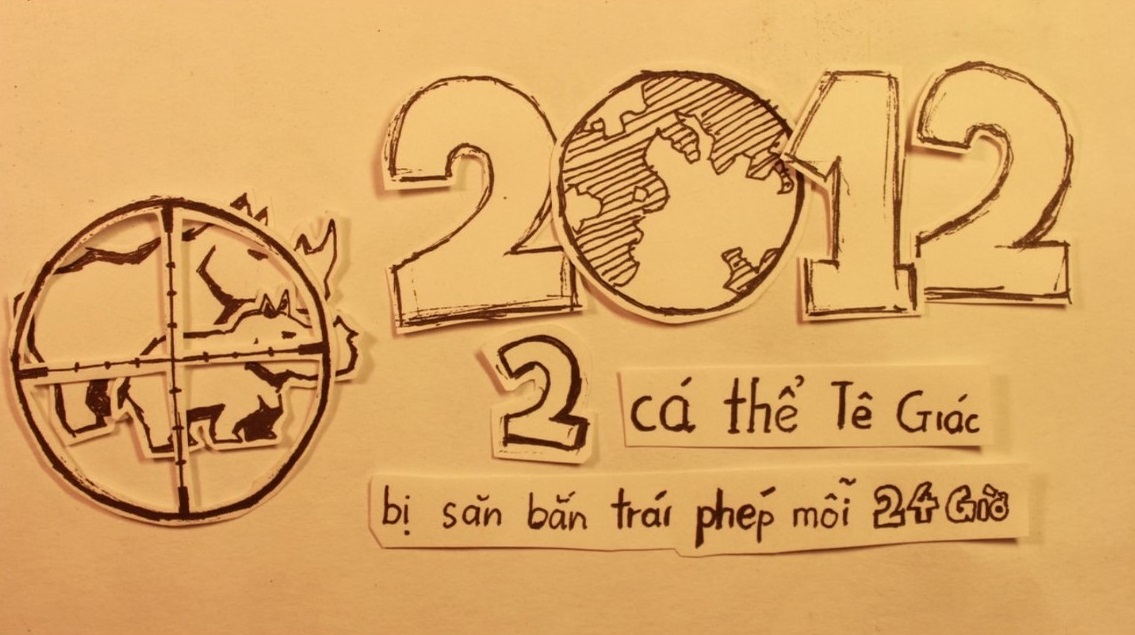 2012
2 cá thể Tê Giác
bị săn bắn trái phép mỗi 24 Giờ